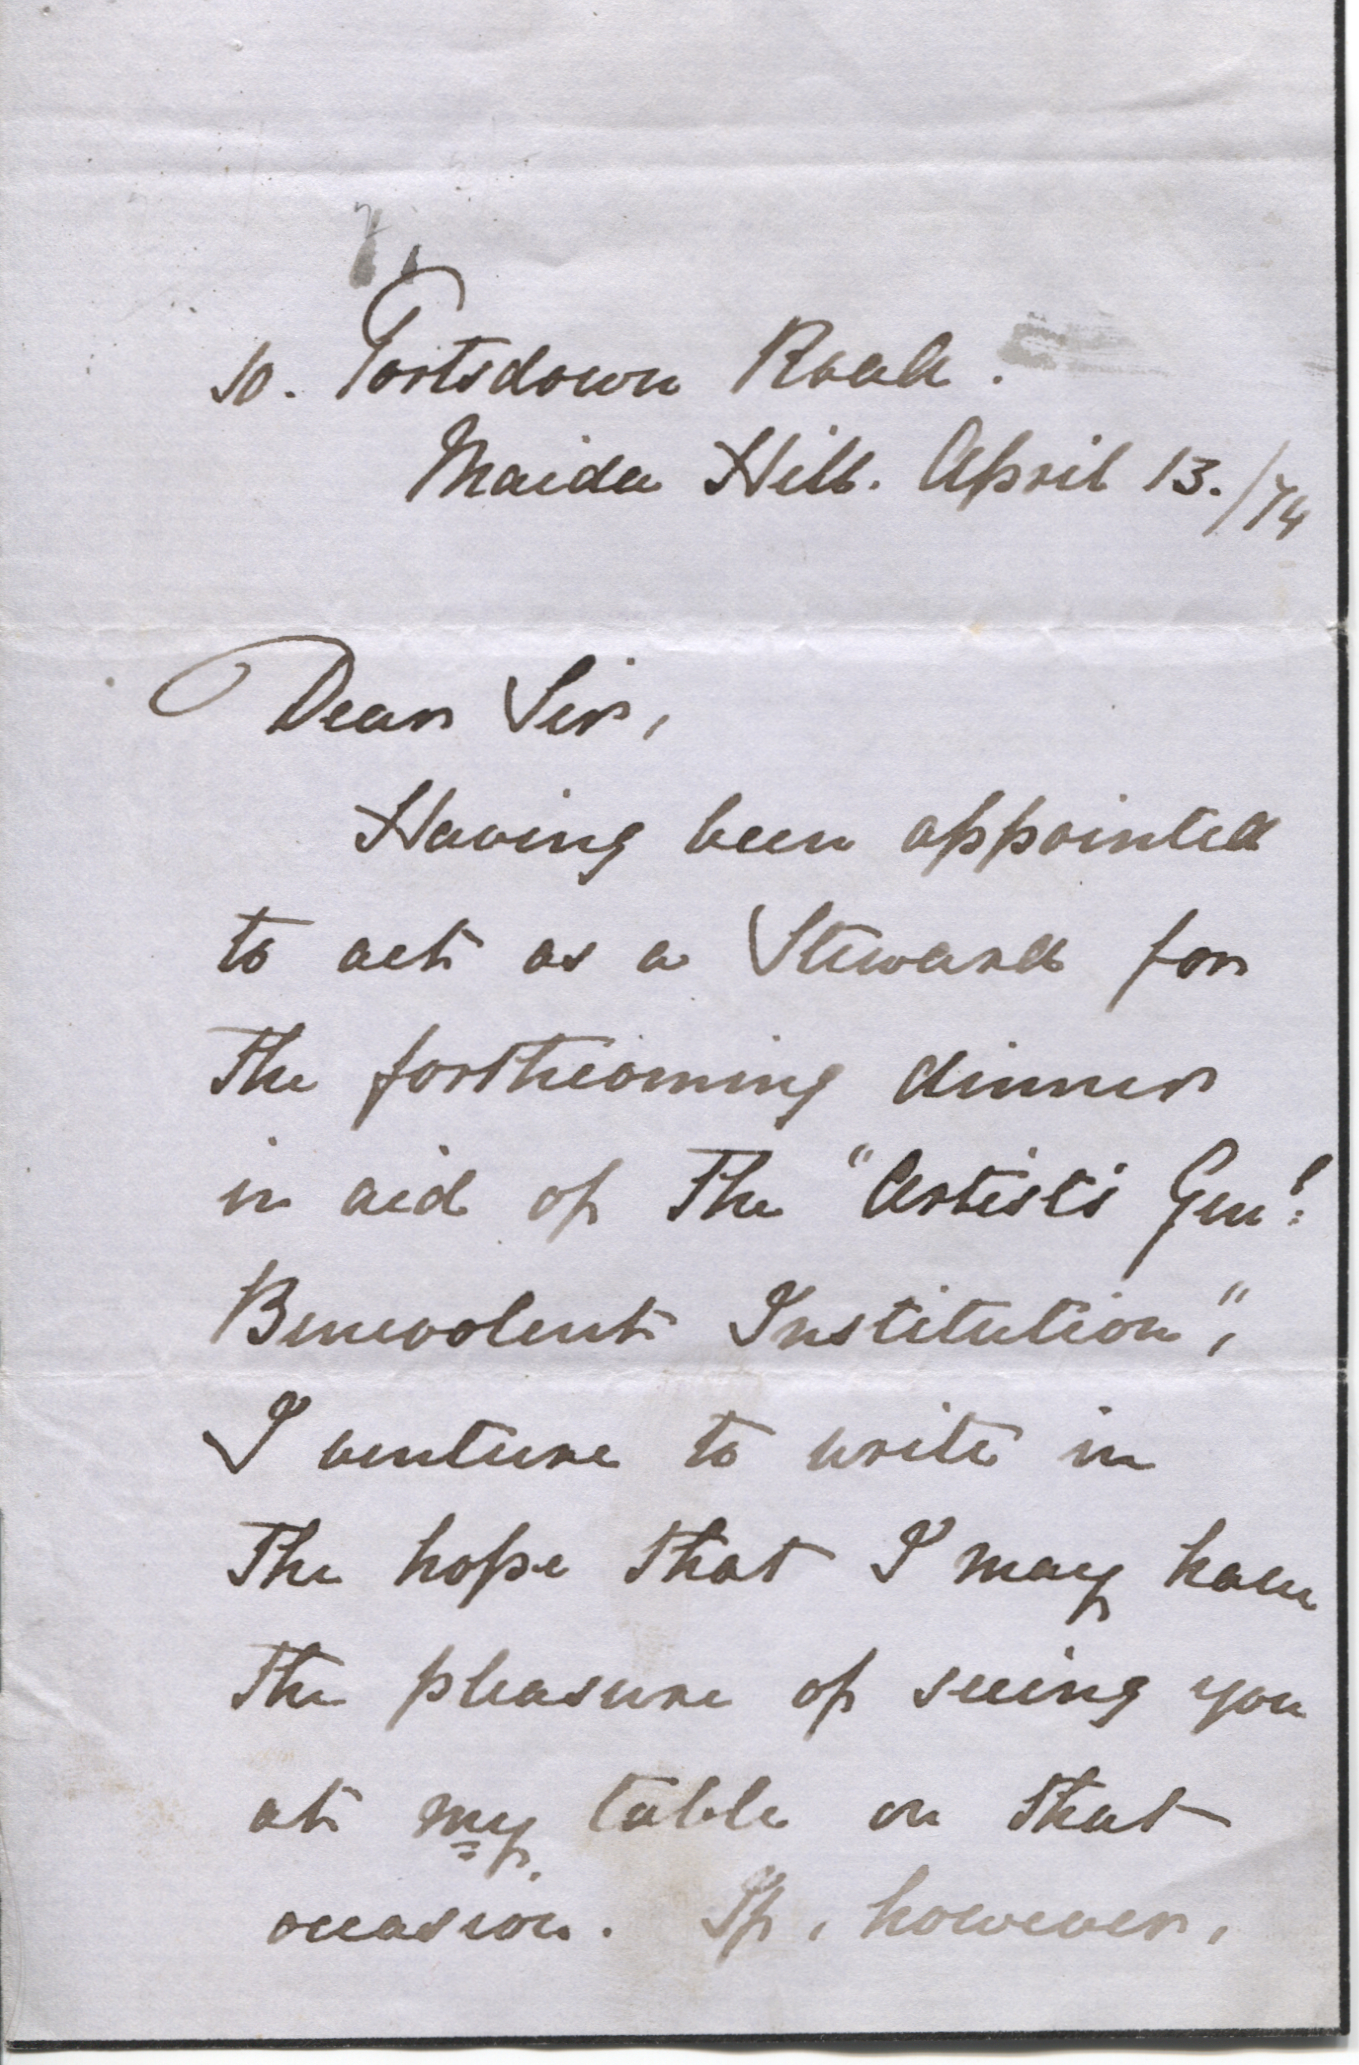 10. Portsdown Road.
Maida Hill. April 13./74
Dear Sir,
Having been appointed
to act as a Steward for
the forthcoming dinner
in aid of the "Artists Genl:
Benevolent Institution",
I venture to write in
the hope that I may have
the pleasure of seeing you
at my table on that
occasion. If, however,